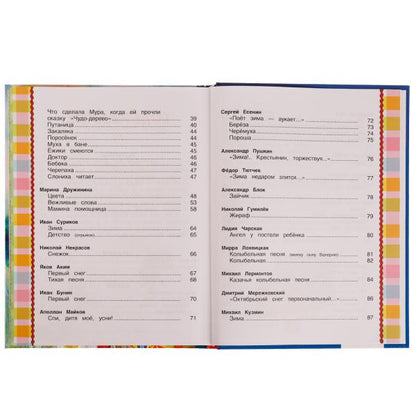 Что сделала Мура, когда ей прочли
сказку «Чудо-дерево» 39
Путаница 40
Закаляка 41
Поросёнок 42
Муха в бане 42
Ёжики смеются 43
Доктор 44
Бебека 44
Черепаха 45
Слониха читает 47
Марина Дружинина
Цвета 48
Вежливые слова 53
Мамина помощница 58
Иван Суриков
Зима 64
Детство (отрывок) 65
Николай Некрасов
Снежок 66
Яков Аким
Первый снег 67
Тихая песня 68
Иван Бунин
Первый снег 70
Аполлон Майков
Спи, дитя моё, усни! 71
Сергей Есенин
«Поёт зима — аукает...» 72
Берёза 73
Черёмуха 74
Пороша 75
Александр Пушкин
«Зима!.. Крестьянин, торжествуя...» 76
Фёдор Тютчев
«Зима недаром злится...» 77
Александр Блок
Зайчик
Николай Гумилёв
Жираф
Лидия Чарская
Ангел у постели ребёнка
Мирра Лохвицкая
Колыбельная песня 81
Колыбельная 82
Михаил Лермонтов
Казачья колыбельная песня 84
Дмитрий Мережковский
«Октябрьский снег первоначальный...» 86
Михаил Кузмин
Зима 87